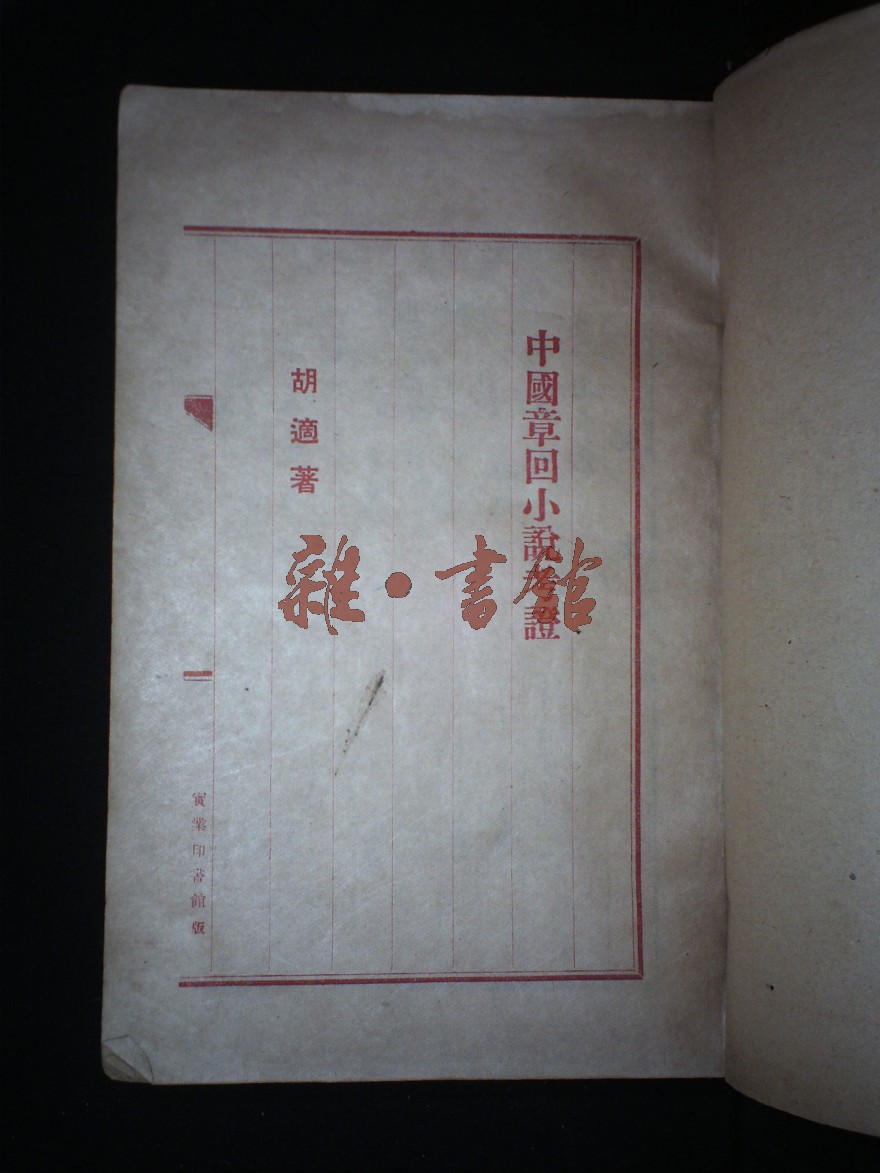 中國章回小說考證
胡適著
實業印書館版
雜·書館